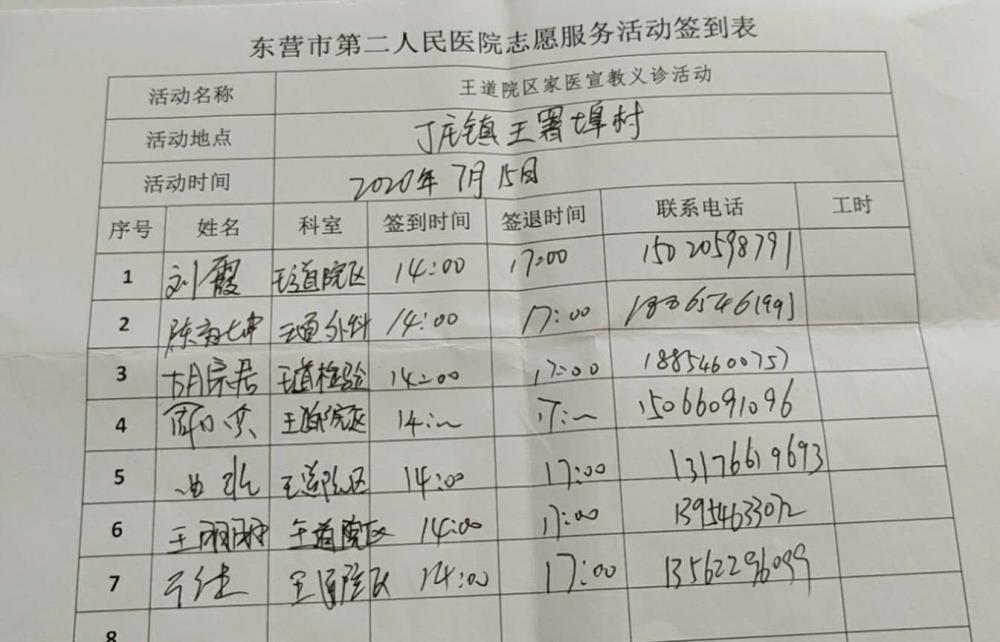 东营市第二人民医院志愿服务活动签到表
活动名称 王道院区家医宣教义诊活动
活动地点 丁庄镇王署埠村
活动时间 2020年7月15日
序号 姓名 科室 签到时间 签退时间 联系电话 工时
1 刘霞 王道院区 14:00 17:00 15020598791
2 王道外科 14:00 17:00
3 胡宗居 王道检验 14:00 17:00 18854600757
4 王道院区 14:~ 17:~ 15066091096
5 王道院区 14:00 17:00 13176619693
6 王丽丽 王道院区 14:00 17:00 13954633072
7 王道院区 14:00 17:00 13562296099
8